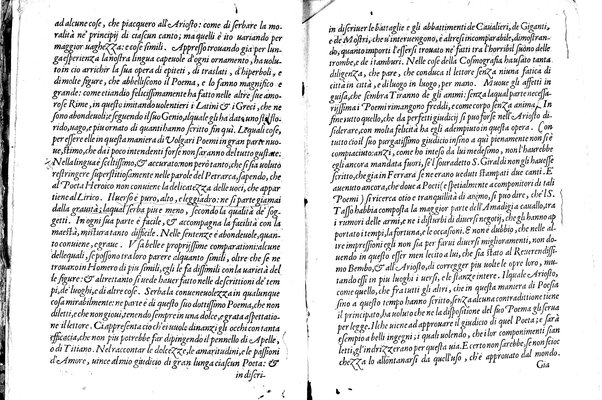 ad alcune cose, che piacquero all'Ariosto: come di serbare la mo-
ralità ne' principij di ciascun canto; ma quelli è ito variando per
maggior uaghezza: e cose simili. Appresso trouando gia per lun-
ga esperienza la nostra lingua capeuole d'ogni ornamento, ha uolu-
to in cio arrichir la sua opera di epiteti, di traslati, d'hiperboli, e
di molte figure, che abbelliscono il Poema, e lo fanno magnifico e
grande: come etiandio felicissimamente ha fatto nelle altre sue amo-
rose Rime, in questo imitando uolentieri i Latini & i Greci, che ne
sono abondeuoli; e seguendo il suo Genio, alquale gli ha dato uno stil flo-
rido, uago, e piu ornato di quanti hanno scritto fin qui. Le quali cose,
per essere dette in questa maniera di Volgari Poemi in gran parte nuo-
ue, stimo, che da i poco intendenti forse non saranno del tutto gustate.
Nella lingua è sceltissimo, & accurato: non però tanto, che si sia uoluto
restringere superstitiosamente nelle parole del Petrarca, sapendo, che
al Poeta Heroico non conuiene la delicatezza delle uoci, che appar-
tiene al Lirico. Il uerso è puro, alto, e leggiadro: ne si parte giamai
dalla grauità; laqual serba piu e meno, secondo la qualità de' sog-
getti. In ogni sua parte è facile, & accompagna la facilità con la
maestà, mistura tanto difficile. Nelle sentenze è abondeuole, quan-
to conuiene, e graue. Vsa belle e propriissime comparationi: alcune
delle quali, se possono tra loro parere alquanto simili, oltre che se ne
trouano in Homero di piu simili, egli le fa dissimili con la varietà del
le figure: & altretanto si uede hauer fatto nelle descrittioni de' tem-
pi, de' luoghi, e di altre cose. Serba la conueneuolezza in qualunque
cosa mirabilmente: ne parte è di questo suo dottissimo Poema, che non
diletti, e che non gioui, tenendo sempre in una dolce, e grata aspettatio-
ne il lettore. Ci appresenta cio ch'è i uuole dinanzi gli occhi con tanta
efficacia, che non piu potrebbe far dipingendo il pennello di Apelle,
o di Titiano. Nel raccontar le dolcezze, le amaritudini, e le passioni
d'Amore, uince al mio giudicio di gran lunga ciascun Poeta: &
in discri-
in discriuer le battaglie e gli abbattimenti de Caualieri, de Giganti,
e de Mostri, che u'interuengono, è altresi incomparabile, dimostran-
do, quanto importi l'essersi trouato ne' fatti tra l'horribil suono delle
trombe, e de i tamburi. Nelle cose della Cosmografia ha usato tanta
diligenza, che pare, che conduca il lettore senza niuna fatica di
città in città, e di luogo in luogo, per mano. Muoue gli affetti in
guisa, che sembra Tiranno de gli animi: senza laqual parte necessa-
rijssima i Poemi rimangono freddi, e come corpo senza anima. In
fine tutto quello, che da perfetti giudicij si puo forse nell'Ariosto di-
siderare, con molta felicità ha egli adempiuto in questa opera. Con
tutto cio il suo purgatissimo giudicio sino a qui non pienamente si è
compiaciuto: anzi, come ho inteso da lui medesimo, non l'haurebbe
egli ancora mandata fuori, se'l sopradetto S. Giraldi non gli hauesse
scritto, che gia in Ferrara se ne erano ueduti stampati due canti. E
auenuto ancora, che doue a Poeti (e spetialmente a compositori di tali
Poemi) si ricerca otio e tranquillità di animo, si puo dire, che'l S.
Tasso habbia composta la maggior parte dell'Amadigi a cauallo, tra
i rumori dell'arme, e i disturbi di diuersi negotij, che gli hanno ap-
portato i tempi, la fortuna, e le occasioni. & non è dubbio, che nelle al-
tre impressioni egli non sia per farui diuersi miglioramenti, non do-
uendo in questo esser da meno di quello, che sia stato al Reuerendis-
simo Bembo, & all'Ariosto, di correger piu uolte le opre loro, mu-
tando essi in piu luoghi i uersi, e le stanze intere. Ilquale Ariosto,
come quello, che fra tutti gli altri, che in questa maniera di Poesia
sino a questo tempo hanno scritto, senza alcuna contradittione tiene
il principato, ha uoluto che ne la dispositione del suo Poema gli serua
per legge. Il che uiene ad approuare il giudicio di quel Poeta; e sarà
esempio a belli ingegni; i quali uolendo, che i lor componimenti sian
letti, gl'indrizzerano per questa uia. E certo non sarebbe, se non scioc
chezza lo allontanarsi da quell'uso, ch'è approuato dal mondo.
Gia